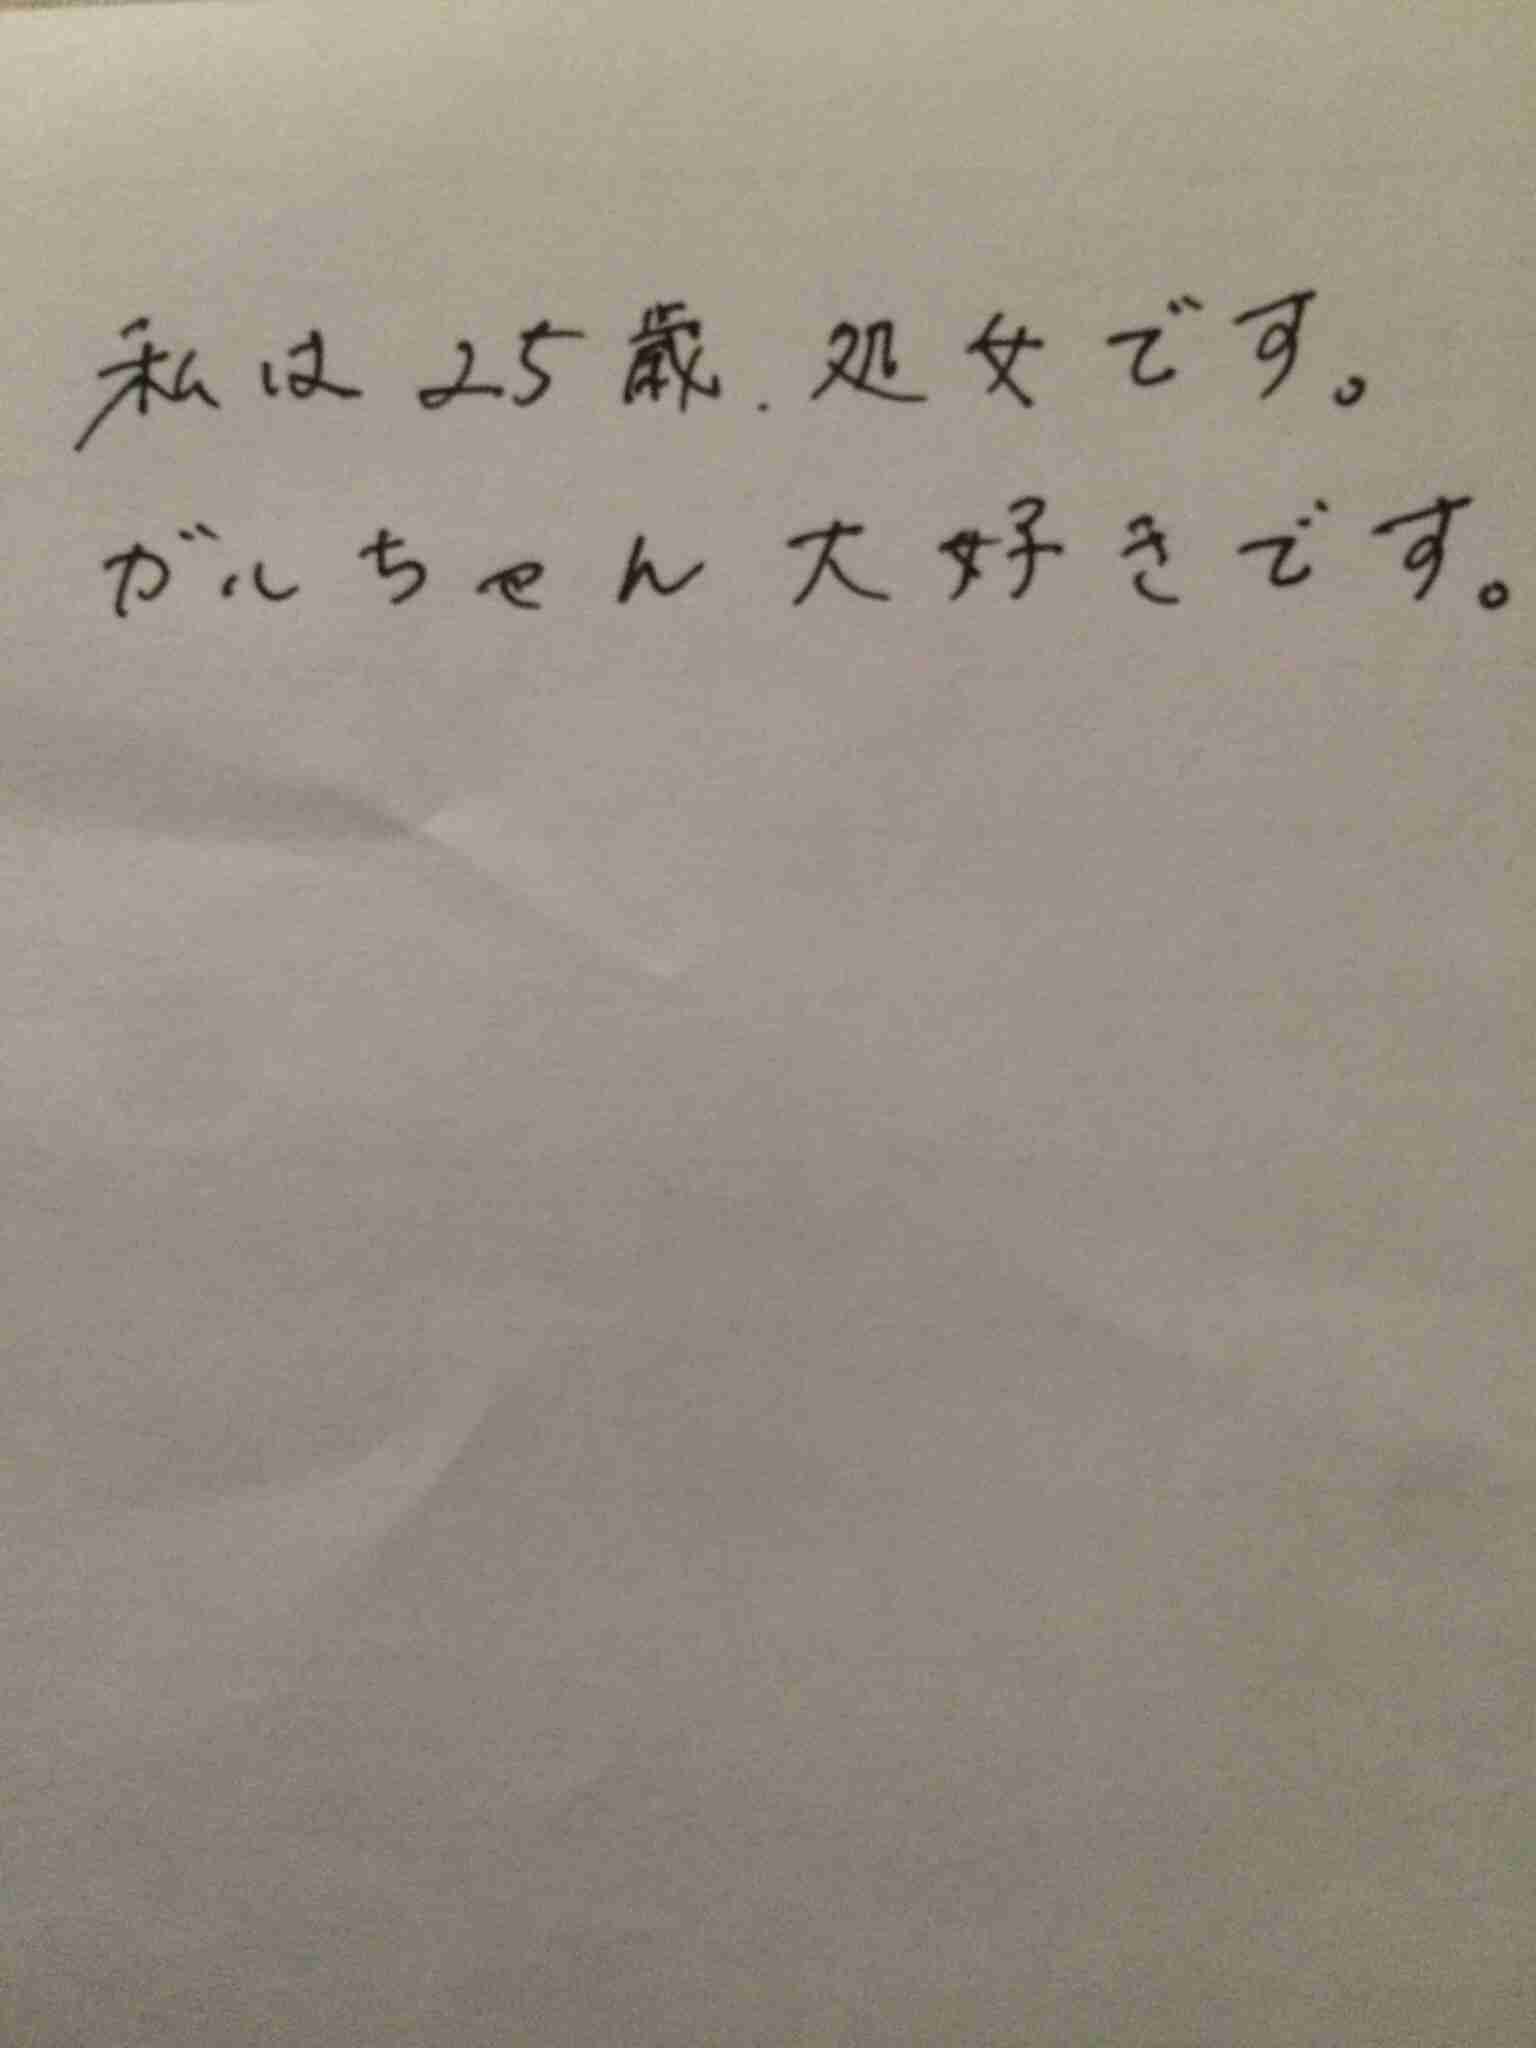 私は25歳.処女です。
ガルちゃん大好きです。